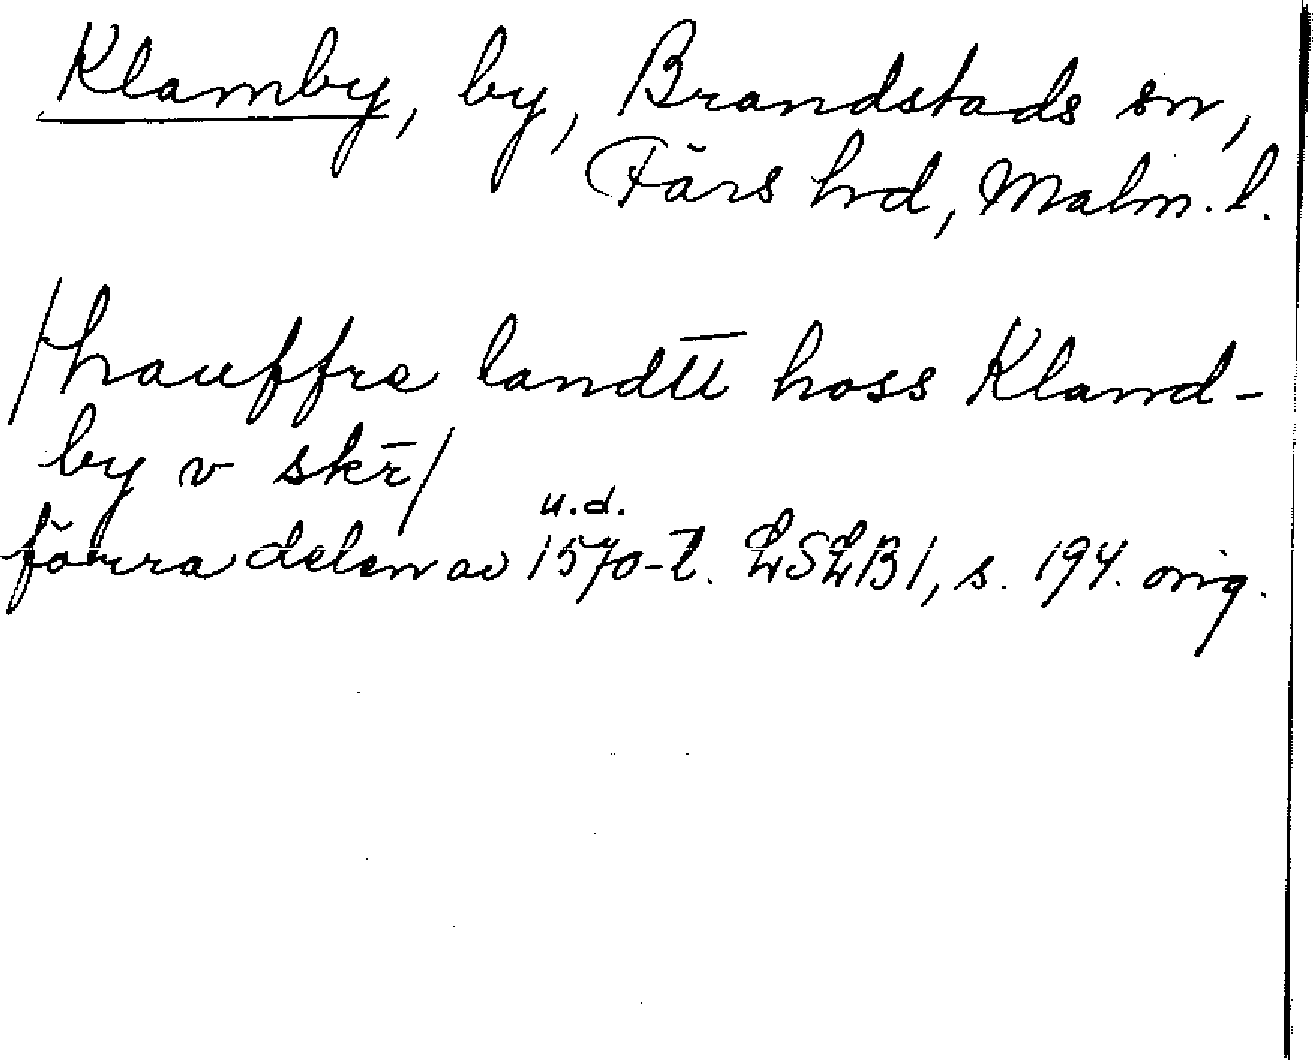 Klamby, by, Brandstads sn,
Färs hd, Malm. l.
/hauffre landtt hoss Kland-
by v skr/
u.d.
förra delen av 1570-t. LSLB 1, s. 194. orig.